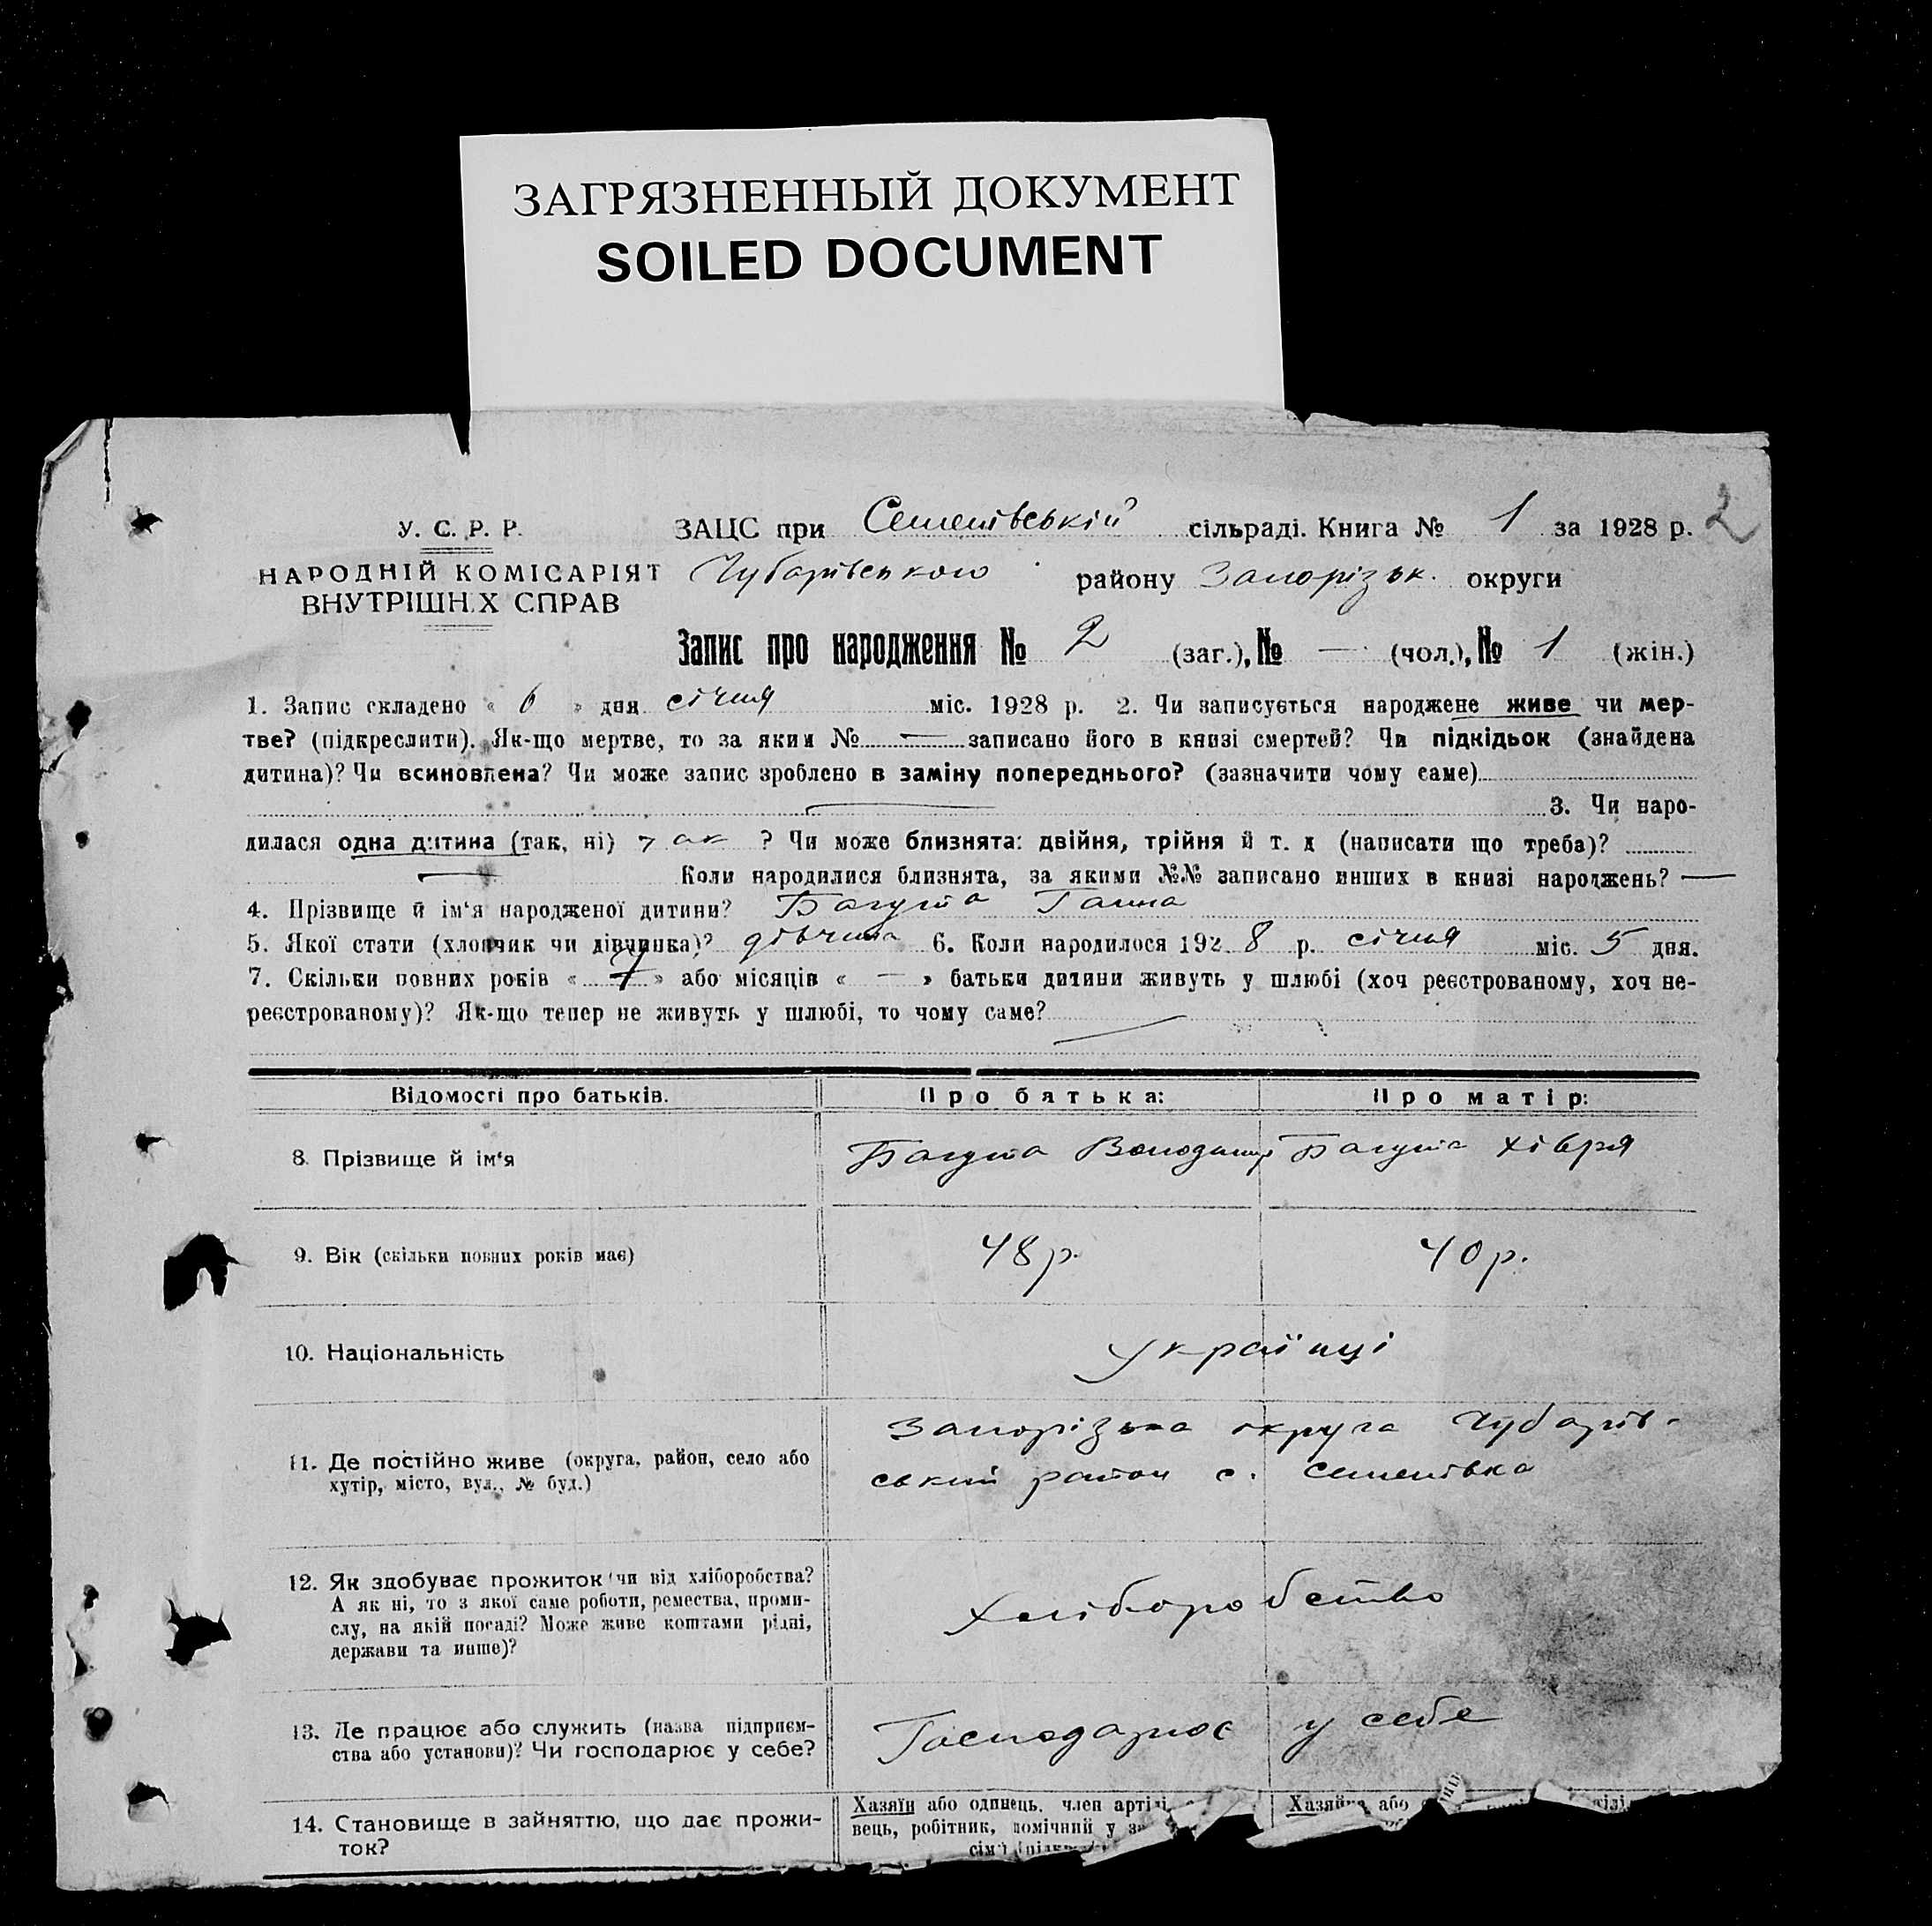 ЗАГРЯЗНЕННЫЙ ДОКУМЕНТ
SOILED DOCUMENT
2
У. С. Р. Р.
НАРОДНІЙ КОМІСАРІЯТ
ВНУТРІШНІХ СПРАВ
ЗАЦС при Семенівській сільраді. Книга № 1 за 1928 р.
Чубарівського району Запорізьк. округи
Запис про народження № 2 (заг.), № — (чол.), № 1 (жін.)
1. Запис складено « 6 » дня січня міс. 1928 р. 2. Чи записується народжене живе чи мер-
тве? (підкреслити). Як-що мертве, то за яким № — записано його в книзі смертей? Чи підкідьок (знайдена
дитина)? Чи всиновлена? Чи може запис зроблено в заміну попереднього? (зазначити чому саме)
— 3. Чи наро-
дилася одна дитина (так, ні) так ? Чи може близнята: двійня, трійня й т. д (написати що треба)?
— Коли народилися близнята, за якими №№ записано инших в книзі народжень? —
4. Прізвище й ім'я народженої дитини? Багута Ганна
5. Якої стати (хлопчик чи дівчинка)? дівчина 6. Коли народилося 1928 р. січня міс. 5 дня.
7. Скільки повних років « 7 » або місяців « — » батьки дитини живуть у шлюбі (хоч реєстрованому, хоч не-
реєстрованому)? Як-що тепер не живуть у шлюбі, то чому саме? —
Відомості про батьків. Про батька: Про матір:
8. Прізвище й ім'я Багута Володимир Багута Хівря
9. Вік (скільки повних років має) 48 р. 40 р.
10. Національність Українці
11. Де постійно живе (округа, район, село або
хутір, місто, вул., № буд.)
Запорізька округа Чубарів-
ський район с. Семенівка
12. Як здобуває прожиток чи від хліборобства?
А як ні, то з якої саме роботи, ремества, проми-
слу, на якій посаді? Може живе коштами рідні,
держави та инше)?
Хліборобство
13. Де працює або служить (назва підприєм-
ства або установи)? Чи господарює у себе?
Господарює у себе
14. Становище в зайняттю, що дає прожи-
ток?
Хазяїн або одинець, член артілі
вець, робітник, помічний у
сім'ї
Хазяйка або